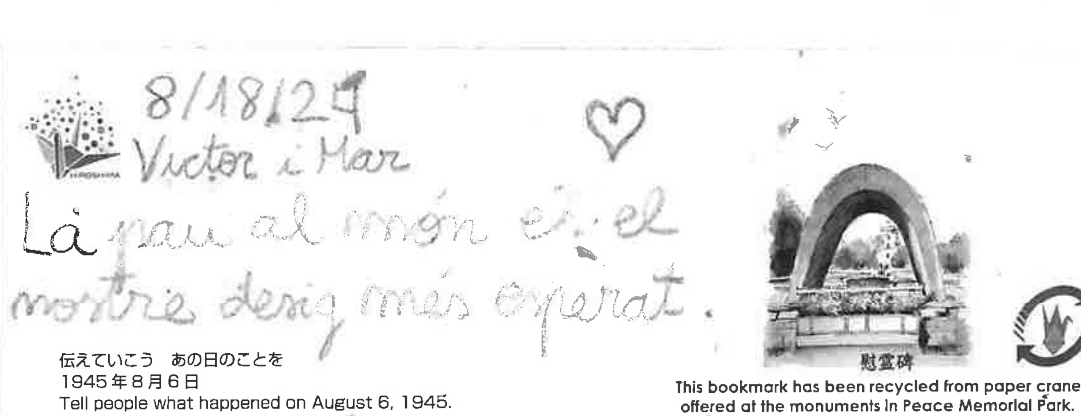 8/18/24
Victor i Mar
La pau al món és el
nostre desig més esperat.
HIROSHIMA
伝えていこう あの日のことを
1945年8月6日
Tell people what happened on August 6, 1945.
慰霊碑
This bookmark has been recycled from paper crane
offered at the monuments in Peace Memorial Park.